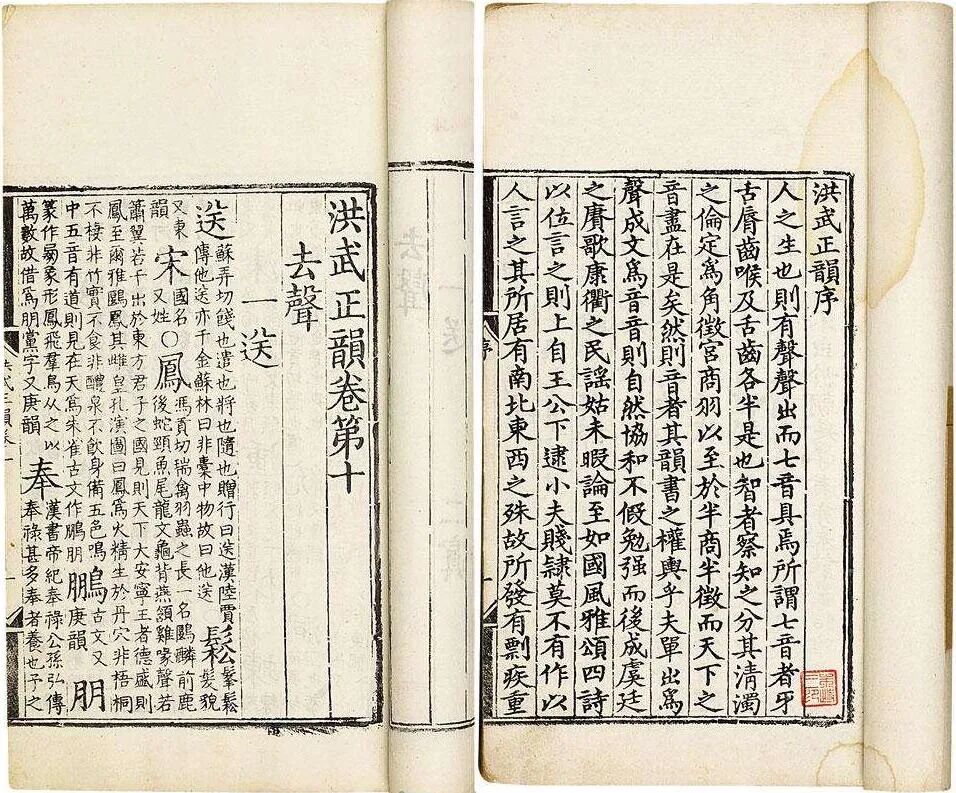 洪武正韻序
人之生也則有聲聲出而七音具焉所謂七音者牙
舌脣齒喉及舌齒各半是也智者察知之分其清濁
之倫定爲角徵宮商羽以至於半商半徵而天下之
音盡在是矣然則音者其韻書之權輿乎夫單出爲
聲成文爲音音則自然協和不假勉强而後成虞廷
之賡歌康衢之民謠姑未暇論至如國風雅頌四詩
以位言之則上自王公下逮小夫賤隸莫不有作以
人言之其所居有南北東西之殊故所發有剽疾重
序
洪武正韻卷第十
去聲
一送
送蘇弄切餞也遣也將也隨也贈行曰送漢陸賈傳他送亦千金蘇林曰非橐中物故曰他送鬆鬆髮貌
又東韻宋國名又姓○鳳馮貢切瑞禽羽蟲之長一名鶠麟前鹿後蛇頸魚尾龍文龜背燕頷雞喙聲若
簫翼若干出於東方君子之國見則天下大安寧王者德盛則鳳至爾雅鶠鳳其雌皇孔演圖曰鳳爲火精生於丹穴非梧桐
不棲非竹實不食非醴泉不飲身備五色鳴中五音有道則見在天爲朱雀古文作鵬朋鵬古文又庚韻朋
篆作象形鳳飛羣鳥从之以萬數故借爲朋黨字又庚韻奉漢書帝紀奉祿公孫弘傳奉祿甚多奉者養也子之